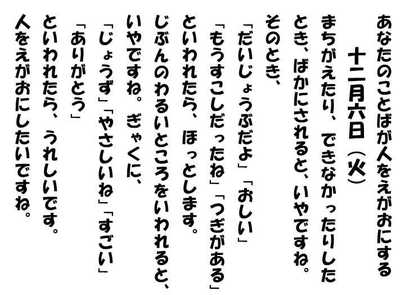 あなたのことばが人をえがおにする
十二月六日(火)
まちがえたり、できなかったりした
とき、ばかにされると、いやですね。
そのとき、
「だいじょうぶだよ」「おしい」
「もうすこしだったね」「つぎがある」
といわれたら、ほっとします。
じぶんのわるいところをいわれると、
いやですね。ぎゃくに、
「じょうず」「やさしいね」「すごい」
「ありがとう」
といわれたら、うれしいです。
人をえがおにしたいですね。